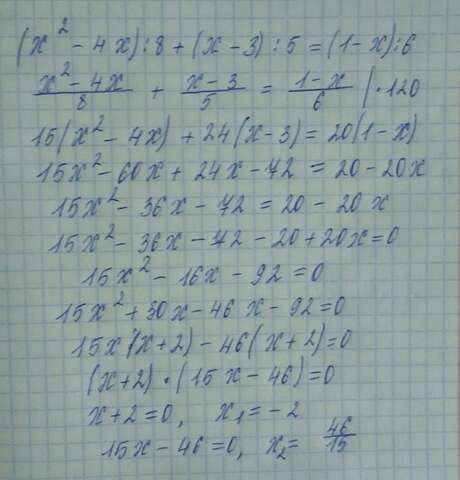 (x² - 4x):8 + (x - 3):5 = (1-x):6
(x² - 4x)/8 + (x - 3)/5 = (1 - x)/6 |·120
15(x² - 4x) + 24(x-3) = 20(1-x)
15x² - 60x + 24x - 72 = 20 - 20x
15x² - 36x - 72 = 20 - 20x
15x² - 36x - 72 - 20 + 20x = 0
15x² - 16x - 92 = 0
15x² + 30x - 46x - 92 = 0
15x(x+2) - 46(x+2) = 0
(x+2)·(15x - 46) = 0
x+2 = 0, x₁ = -2
15x - 46 = 0, x₂ = 46/15